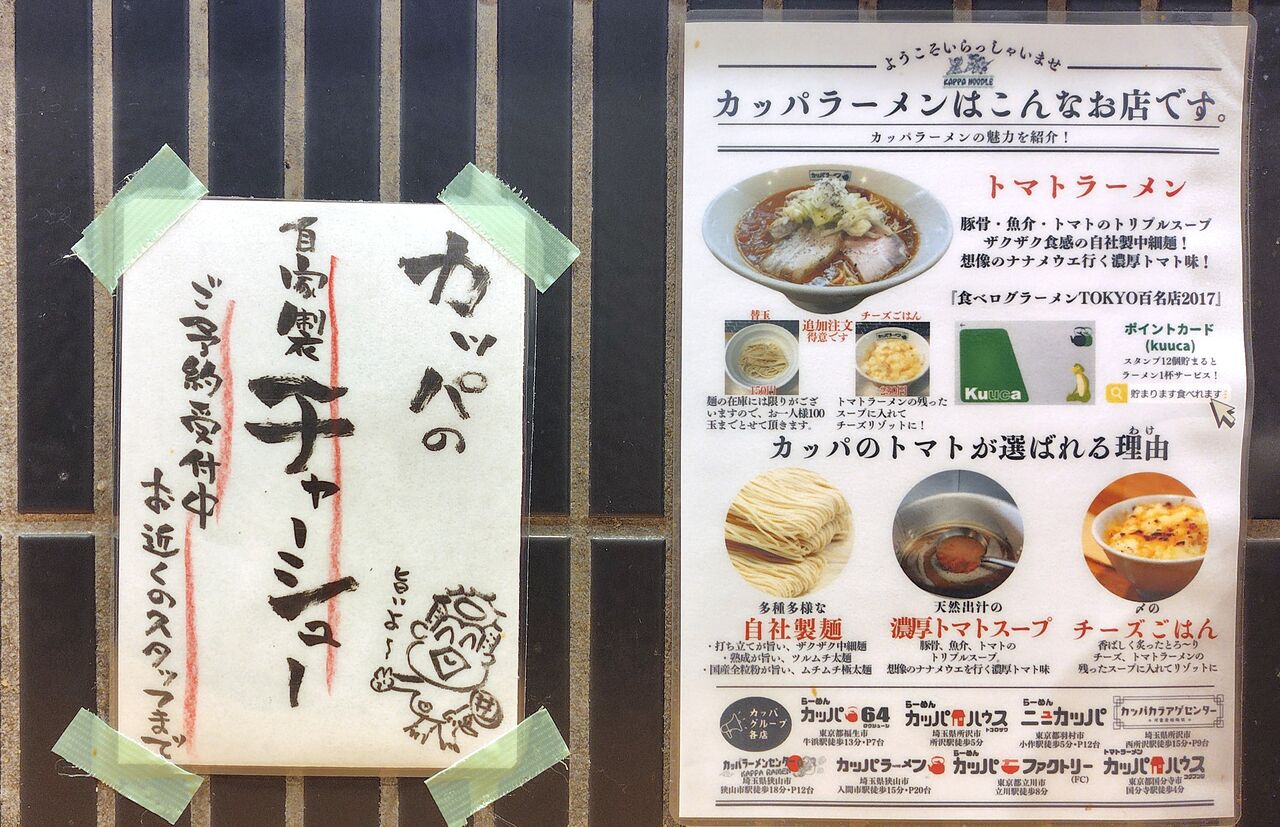 カッパの
自家製チャーシュー
ご予約受付中
お近くのスタッフまで
旨いよ〜
ようこそいらっしゃいませ
KAPPA NOODLE
カッパラーメンはこんなお店です。
カッパラーメンの魅力を紹介！
カッパラーメン
トマトラーメン
豚骨・魚介・トマトのトリプルスープ
ザクザク食感の自社製中細麺！
想像のナナメウエ行く濃厚トマト味！
『食べログラーメンTOKYO百名店2017』
替玉
150円
麺の在庫には限りがござ
いますので、お一人様100
玉までとせて頂きます。
追加注文
得意です
チーズごはん
トマトラーメンの残った
スープに入れて
チーズリゾットに！
Kuuca
ポイントカード
(kuuca)
スタンプ12個貯まると
ラーメン1杯サービス！
貯まります食べれます
カッパのトマトが選ばれる理由
わけ
多種多様な
自社製麺
・打ち立てが旨い、ザクザク中細麺
・熟成が旨い、ツルムチ太麺
・国産全粒粉が旨い、ムチムチ極太麺
天然出汁の
濃厚トマトスープ
豚骨、魚介、トマトの
トリプルスープ。
想像のナナメウエを行く濃厚トマト味
〆の
チーズごはん
香ばしく炙ったとろ〜り
チーズ、トマトラーメンの
残ったスープに入れてリゾットに
カッパ
グループ
各店
らーめん
カッパ64
東京都福生市
牛浜駅徒歩13分・P7台
らーめん
カッパハウス
トコロザワ
埼玉県所沢市
所沢駅徒歩5分
らーめん
ニューカッパ
東京都羽村市
小作駅徒歩5分・P12台
カッパカラアゲセンター
埼玉県所沢市
西所沢駅徒歩15分・P9台
カッパラーメンセンター
KAPPA RAMEN
埼玉県狭山市
狭山市駅徒歩18分・P12台
カッパラーメン
埼玉県狭山市
入間市駅徒歩15分・P20台
らーめん
カッパファクトリー
(FC)
東京都立川市
立川駅徒歩8分
トマトラーメン
カッパハウス
コクブンジ
東京都国分寺市
国分寺駅徒歩4分